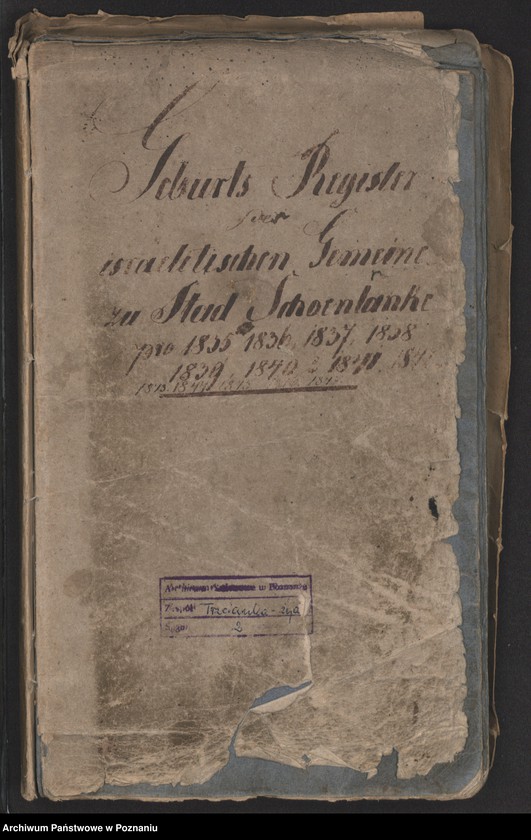 Geburts Register
der
israelitischen Gemeine
zu Stad Schoenlanke
pro 1835 1836, 1837, 1838
1839, 1840 & 1841, 184
1843 1844 1845
Archiwum w Poznaniu
Zespół Trzcianka-
Sygn. 2
Archiwum Państwowe w Poznaniu